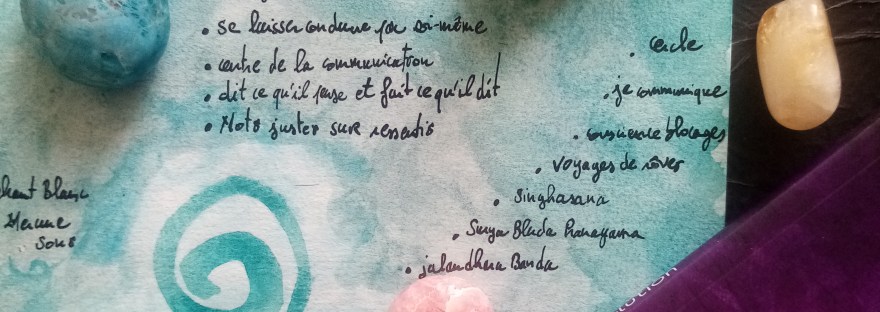 • se laisser conduire par soi-même
• centre de la communication
• dit ce qu'il pense et fait ce qu'il dit
• Mots justes sur ressentis
• cercle
• je communique
• conscience blocages
• voyages de rêves
• Singhasana
• Surya Bheda Pranayama
• jalandhara Banda
Blanc
Mercure
Sons